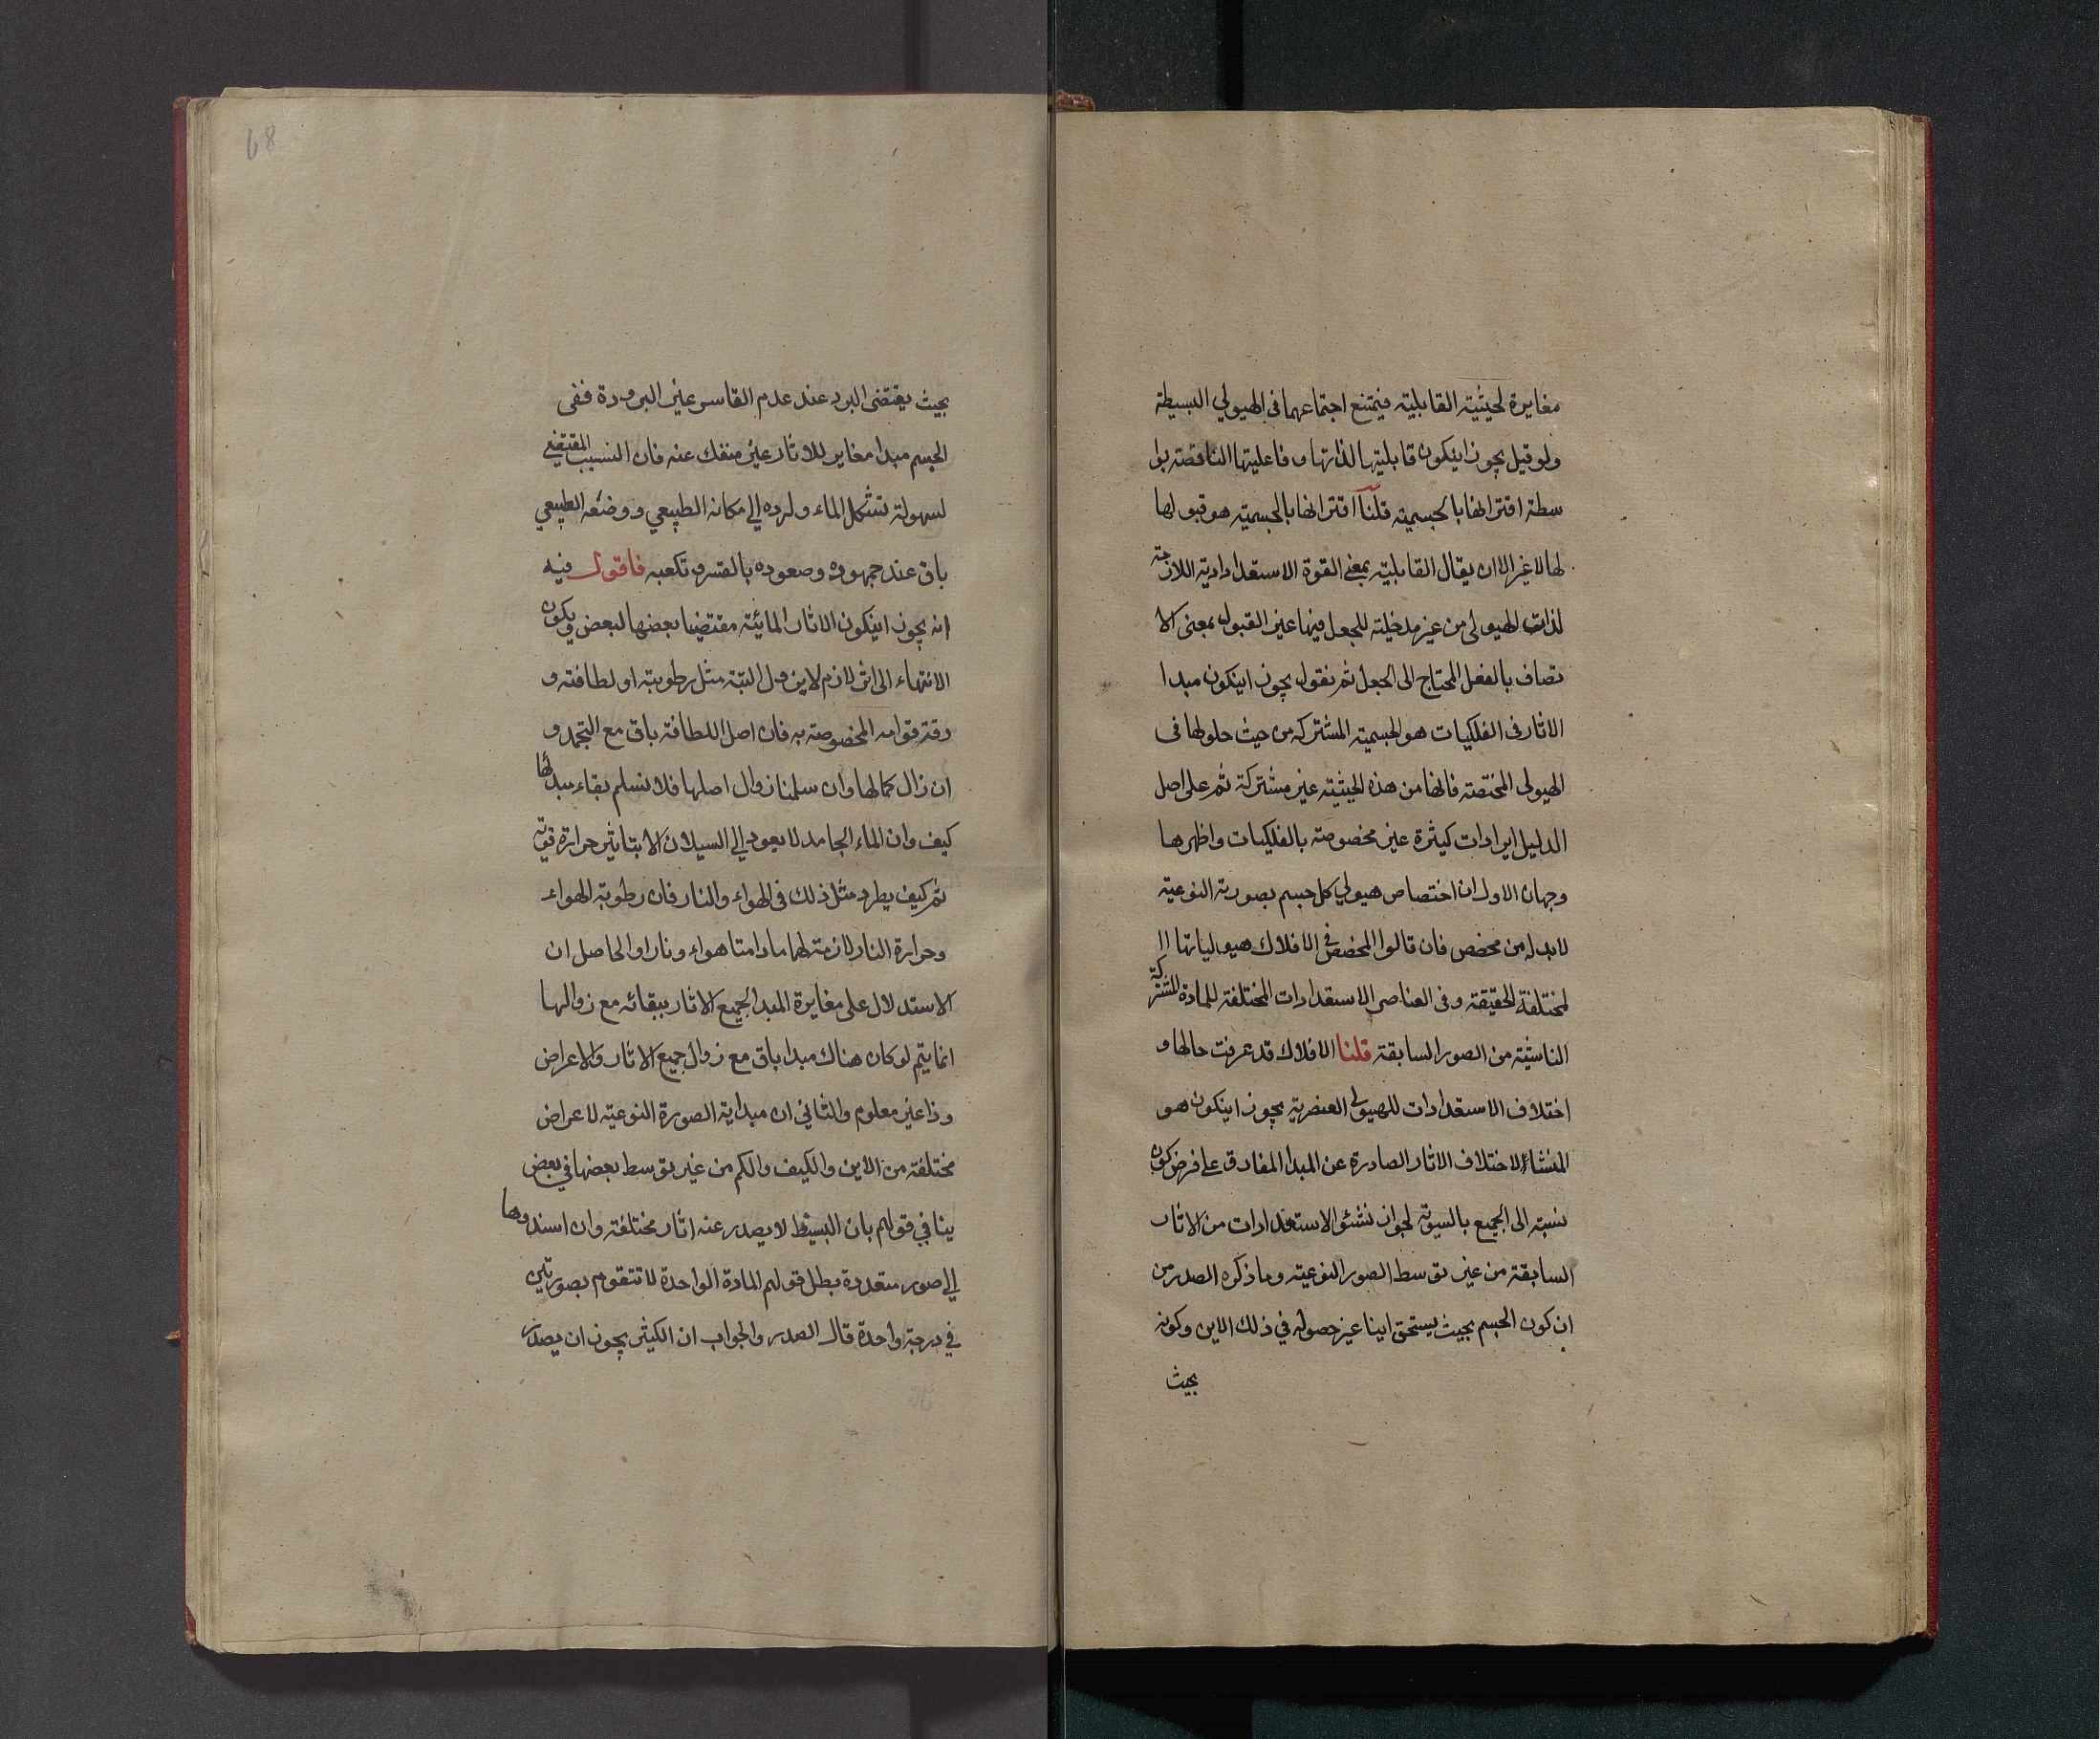 مغايرة لحيثية القابلية فيمتنع اجتماعهما فى الهيولي البسيطة
ولو قيل يجوز اينكون قابليتها لذاتها و فاعليتها الناقصة بوا
سطة اقترانها بالجسمية قلنا اقترانها بالجسمية هو قبولها
لها لا غير الا ان يقال القابلية بمعني القوة الاستعدادية اللازمة
لذات الهيولى من غير مدخلية للجعل فيها غير القبول بمعنى الا
تصاف بالفعل المحتاج الى الجعل ثم نقول يجوز اينكون مبدا
الاثار فى الفلكيات هو الجسمية المشتركة من حيث حلولها فى
الهيولى المختصة فانها من هذه الحيثية غير مشتركة ثم على اصل
الدليل ايرادات كثيرة غير مخصوصة بالفلكيات واظهرها
وجهان الاول ان اختصاص هيولي كل جسم بصورته النوعية
لابد له من مخصص فان قالوا المخصص في الافلاك هيولياتها ا
لمختلفة الحقيقة وفى العناصر الاستعدادات المختلفة للمادة المشتركة
الناشئة من الصور السابقة قلنا الافلاك قد عرفت حالها و
اختلاف الاستعدادات للهيولي العنصرية يجوز اينكون هو
المنشاء لاختلاف الاثار الصادرة عن المبدا المفارق على فرض كون
نسبته الى الجميع بالسوية لجواز نشئ الاستعدادات من الاثار
السابقة من غير توسط الصور النوعية وما ذكره الصدر من
ان كون الجسم بحيث يستحق اينا غير حصوله في ذلك الاين وكونه
بحيث
68
بحيث يقتضى البرد عند عدم القاسر غير البرودة ففى
الجسم مبدا مغاير للاثار غير منفك عنه فان السبب المقتضي
لسهولة تشكل الماء ولرده الي مكانه الطبيعي ووضعه الطبيعي
باق عند جموده وصعوده بالقسر وتكعبه فاقول فيه
انه يجوز اينكون الاثار المائية مقتضيا بعضها لبعض ويكون
الانتهاء الى اثر لازم لايزول البتة مثل رطوبته او لطافته و
رقة قوامه المخصوصة به فان اصل اللطافة باق مع التجمد و
ان زال كمالها وان سلمنا زوال اصلها فلا نسلم بقاء مبدئها
كيف وان الماء الجامد لا يعود الي السيلان الا بتاثير حرارة قوية
ثم كيف يطرد مثل ذلك فى الهواء والنار فان رطوبة الهواء
وحرارة النار لازمة لهما مادامتا هواء ونارا والحاصل ان
الاستدلال على مغايرة المبدا لجميع الاثار ببقائه مع زوالها
انما يتم لو كان هناك مبدا باق مع زوال جميع الاثار والاعراض
وذا غير معلوم والثاني ان مبداية الصورة النوعية لاعراض
مختلفة من الاين والكيف والكم من غير توسط بعضها في بعض
ينافي قولهم بان البسيط لا يصدر عنه اثار مختلفة وان اسندوها
الي صور متعددة بطل قولهم المادة الواحدة لا تتقوم بصورتين
في درجة واحدة قال الصدر والجواب ان الكثير يجوز ان يصدر